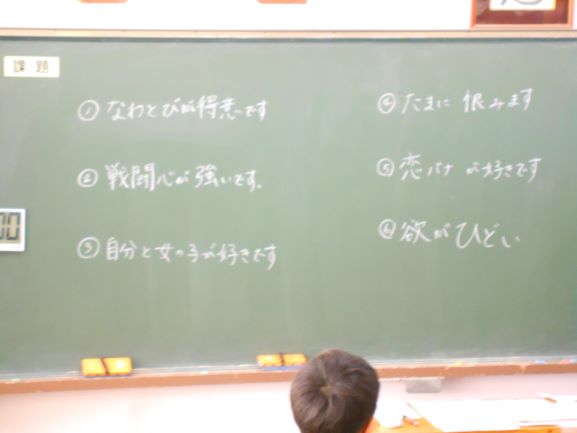 課題
①なわとびが得意です
②戦闘心が強いです。
③自分と女の子が好きです
④たまに恨みます
⑤恋バナが好きです
⑥欲がひどい
00